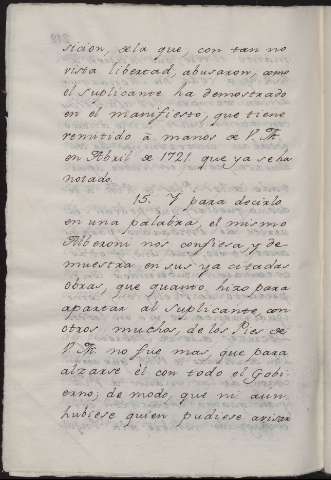 sicion, de la que, con tan no
vista libertad, abusaron, como
el Suplicante ha demostrado
en el manifiesto, que tiene
remitido â manos de V. M.
en Abril de 1721 que ya se ha
notado.
15. Y para decirlo
en una palabra, el mismo
Alberoni nos confiesa, y de-
muestra en sus ya citadas
obras, que quanto hizo para
apartar al Suplicante, con
otros muchos, de los Pies de
V. M. no fue mas, que para
alzarse él con todo el Gobi-
erno; de modo, que ni aun
hubiese quien pudiese avisar